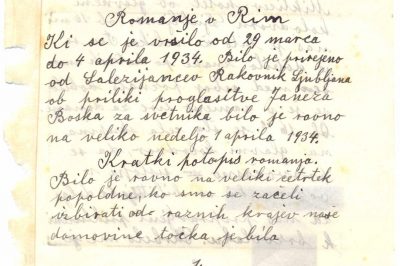 Romanje v Rim
Ki se je vršilo od 29 marca
do 4 aprila 1934. Bilo je prirejeno
od Salezijancev Rakovnik Ljubljana
ob priliki proglasitve Janeza
Boska za svetnika bilo je ravno
na veliko nedeljo 1 aprila 1934.
Kratki potopis romanja.
Bilo je ravno na veliki četrtek
popoldne, ko smo se začeli
vzbirati od raznih krajev naše
domovine točka je bila
1.